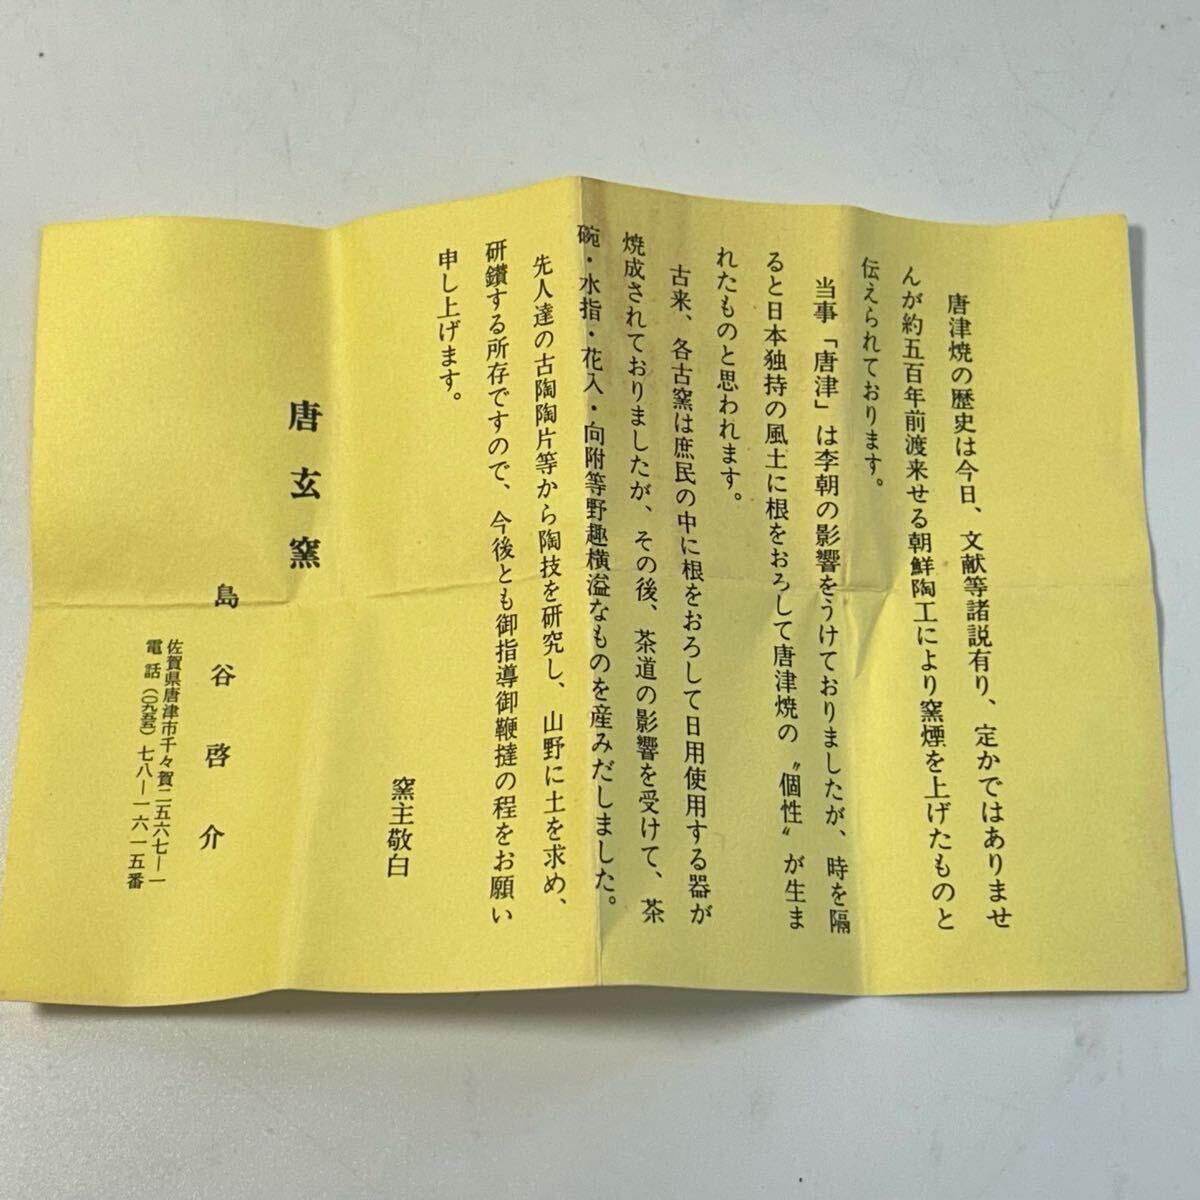 唐津焼の歴史は今日、文献等諸説有り、定かではありませ
んが約五百年前渡来せる朝鮮陶工により窯煙を上げたものと
伝えられております。
当事「唐津」は李朝の影響をうけておりましたが、時を隔
ると日本独持の風土に根をおろして唐津焼の〝個性〟が生ま
れたものと思われます。
古来、各古窯は庶民の中に根をおろして日用使用する器が
焼成されておりましたが、その後、茶道の影響を受けて、茶
碗・水指・花入・向附等野趣横溢なものを産みだしました。
先人達の古陶陶片等から陶技を研究し、山野に土を求め、
研鑽する所存ですので、今後とも御指導御鞭撻の程をお願い
申し上げます。
窯主敬白
唐玄窯
島谷啓介
佐賀県唐津市千々賀二五六七ー一
電話(〇九五五)七八ー一六一五番